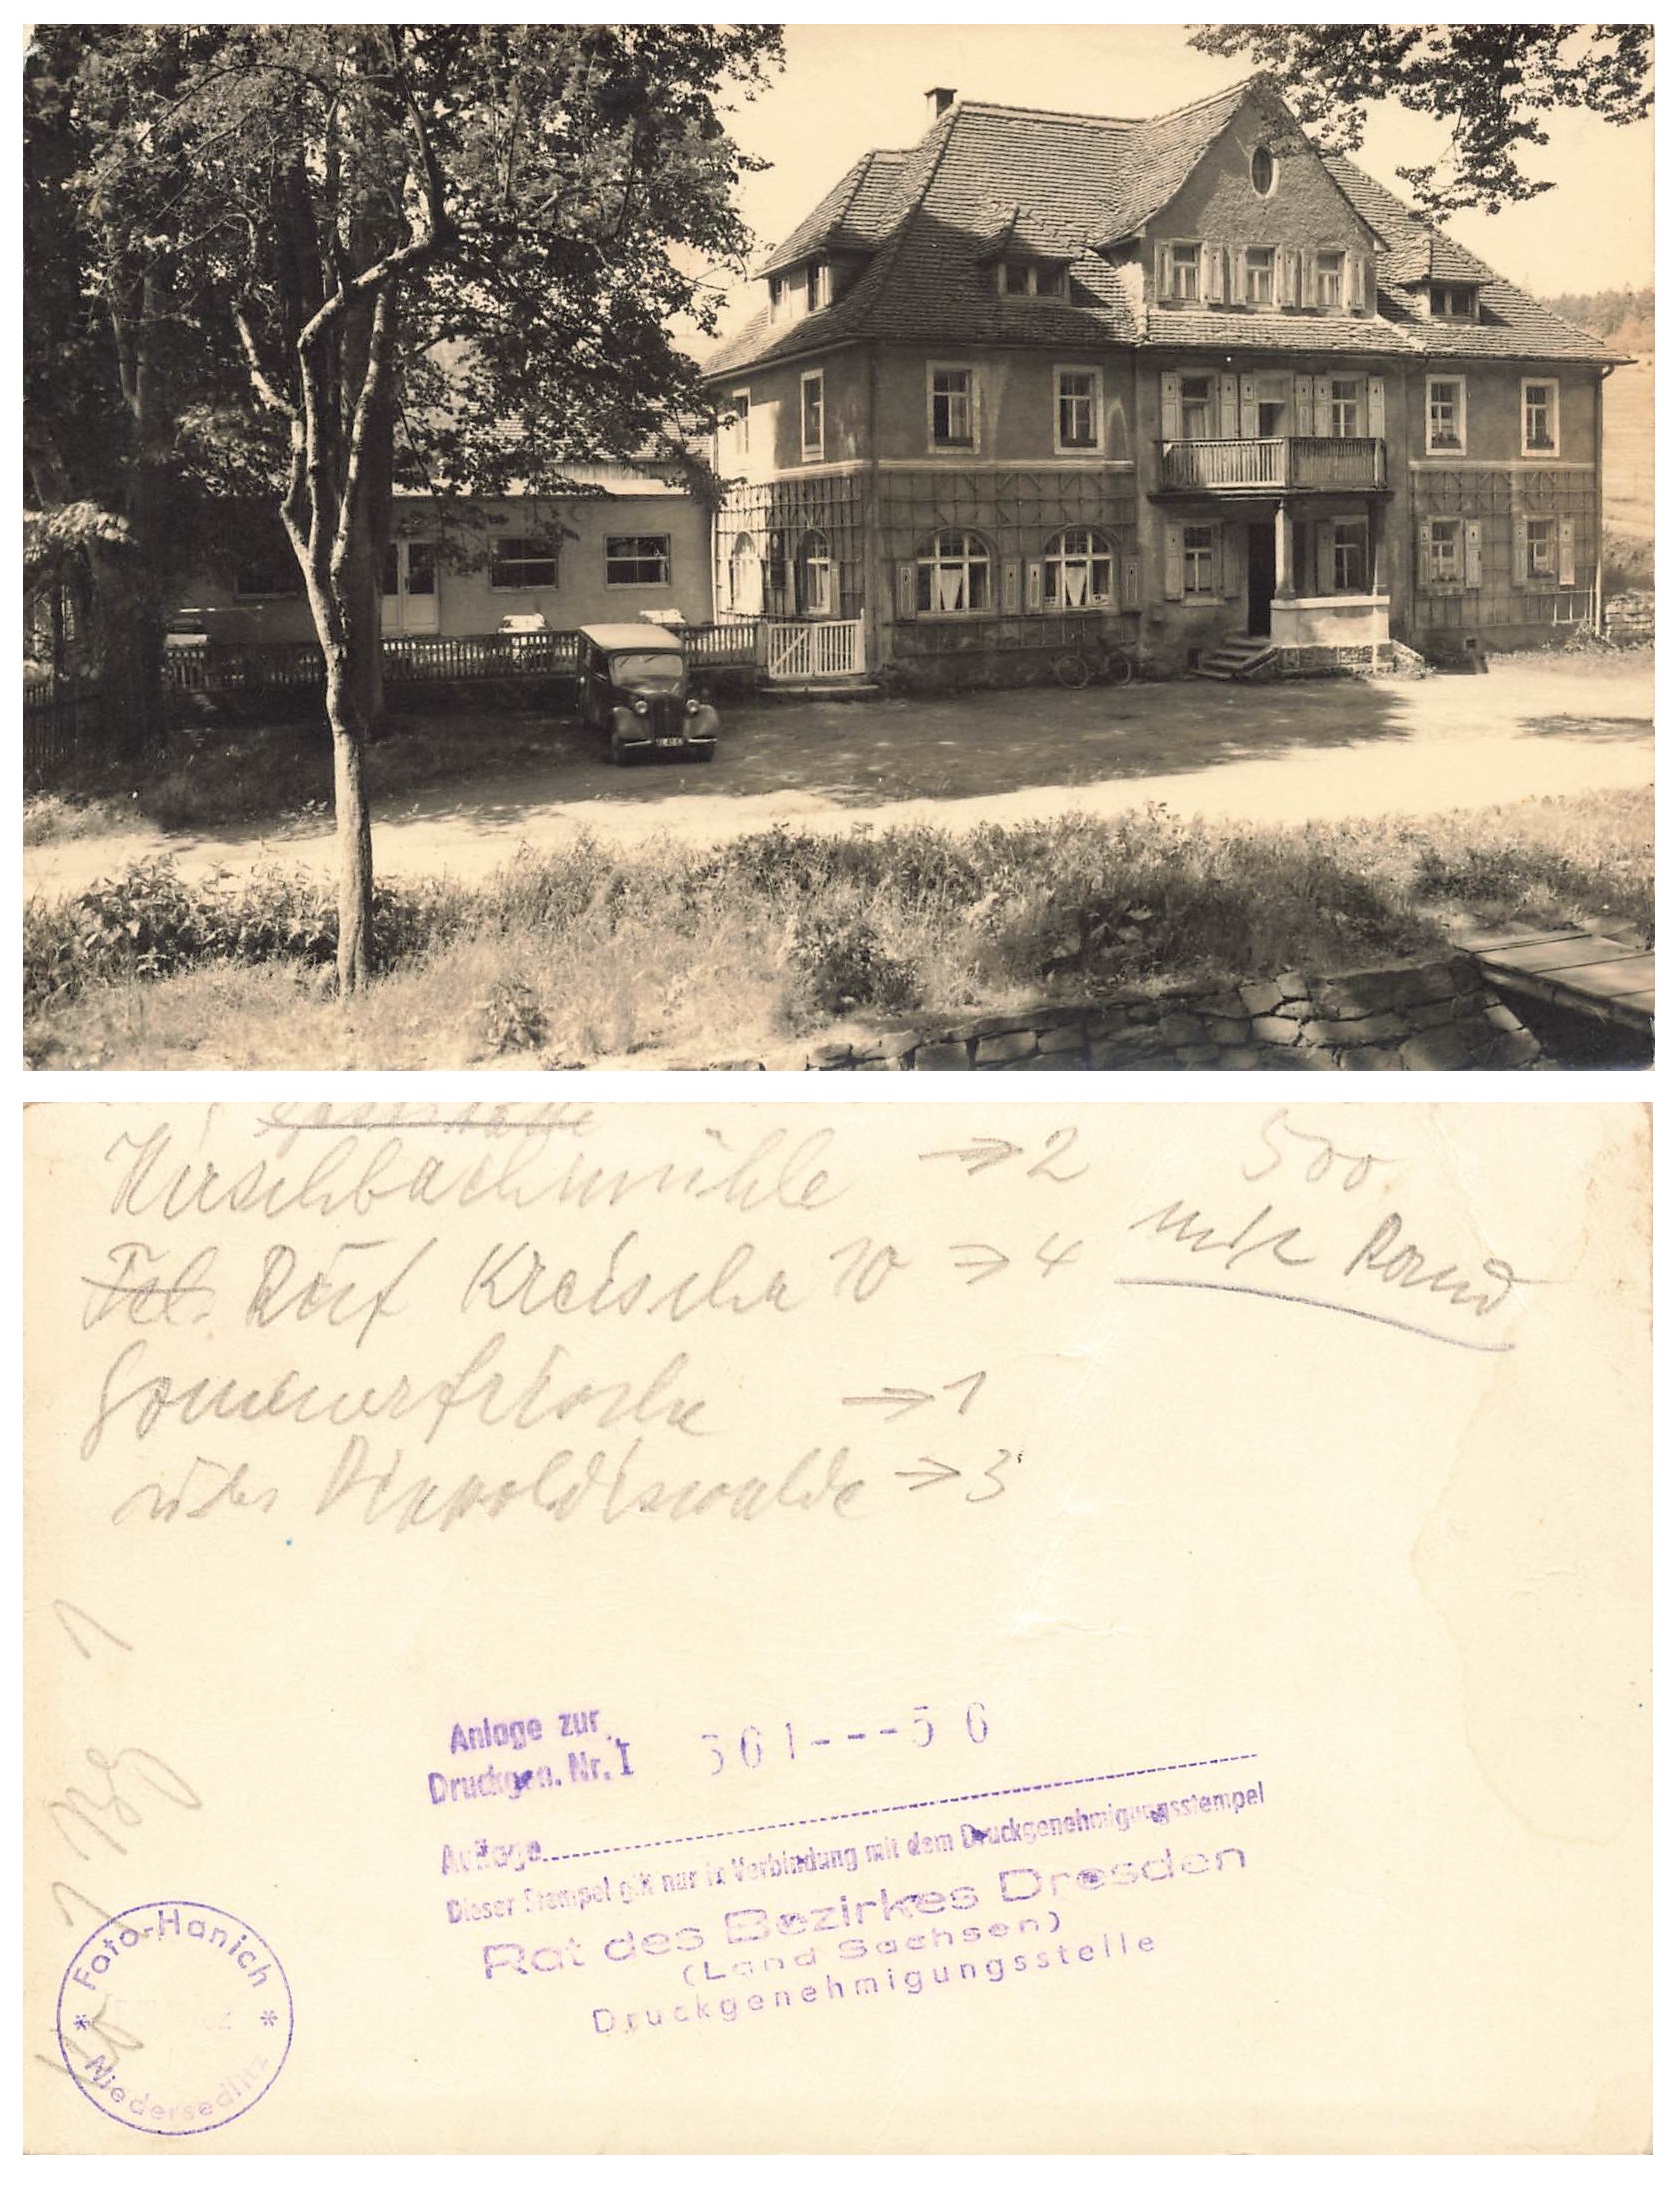 Gaststätte
Hirschbachmühle → 2
500
mit Rand
Tel. Ruf Kreischa 10 → 4
Sommerfrische → 1
über Dippoldiswalde → 3
1
Anlage zur
Druckgen. Nr. I 301---56
Auflage
Dieser Stempel gilt nur in Verbindung mit dem Druckgenehmigungsstempel
Rat des Bezirkes Dresden
(Land Sachsen)
Druckgenehmigungsstelle
Foto-Hanich
* *
Niedersedlitz